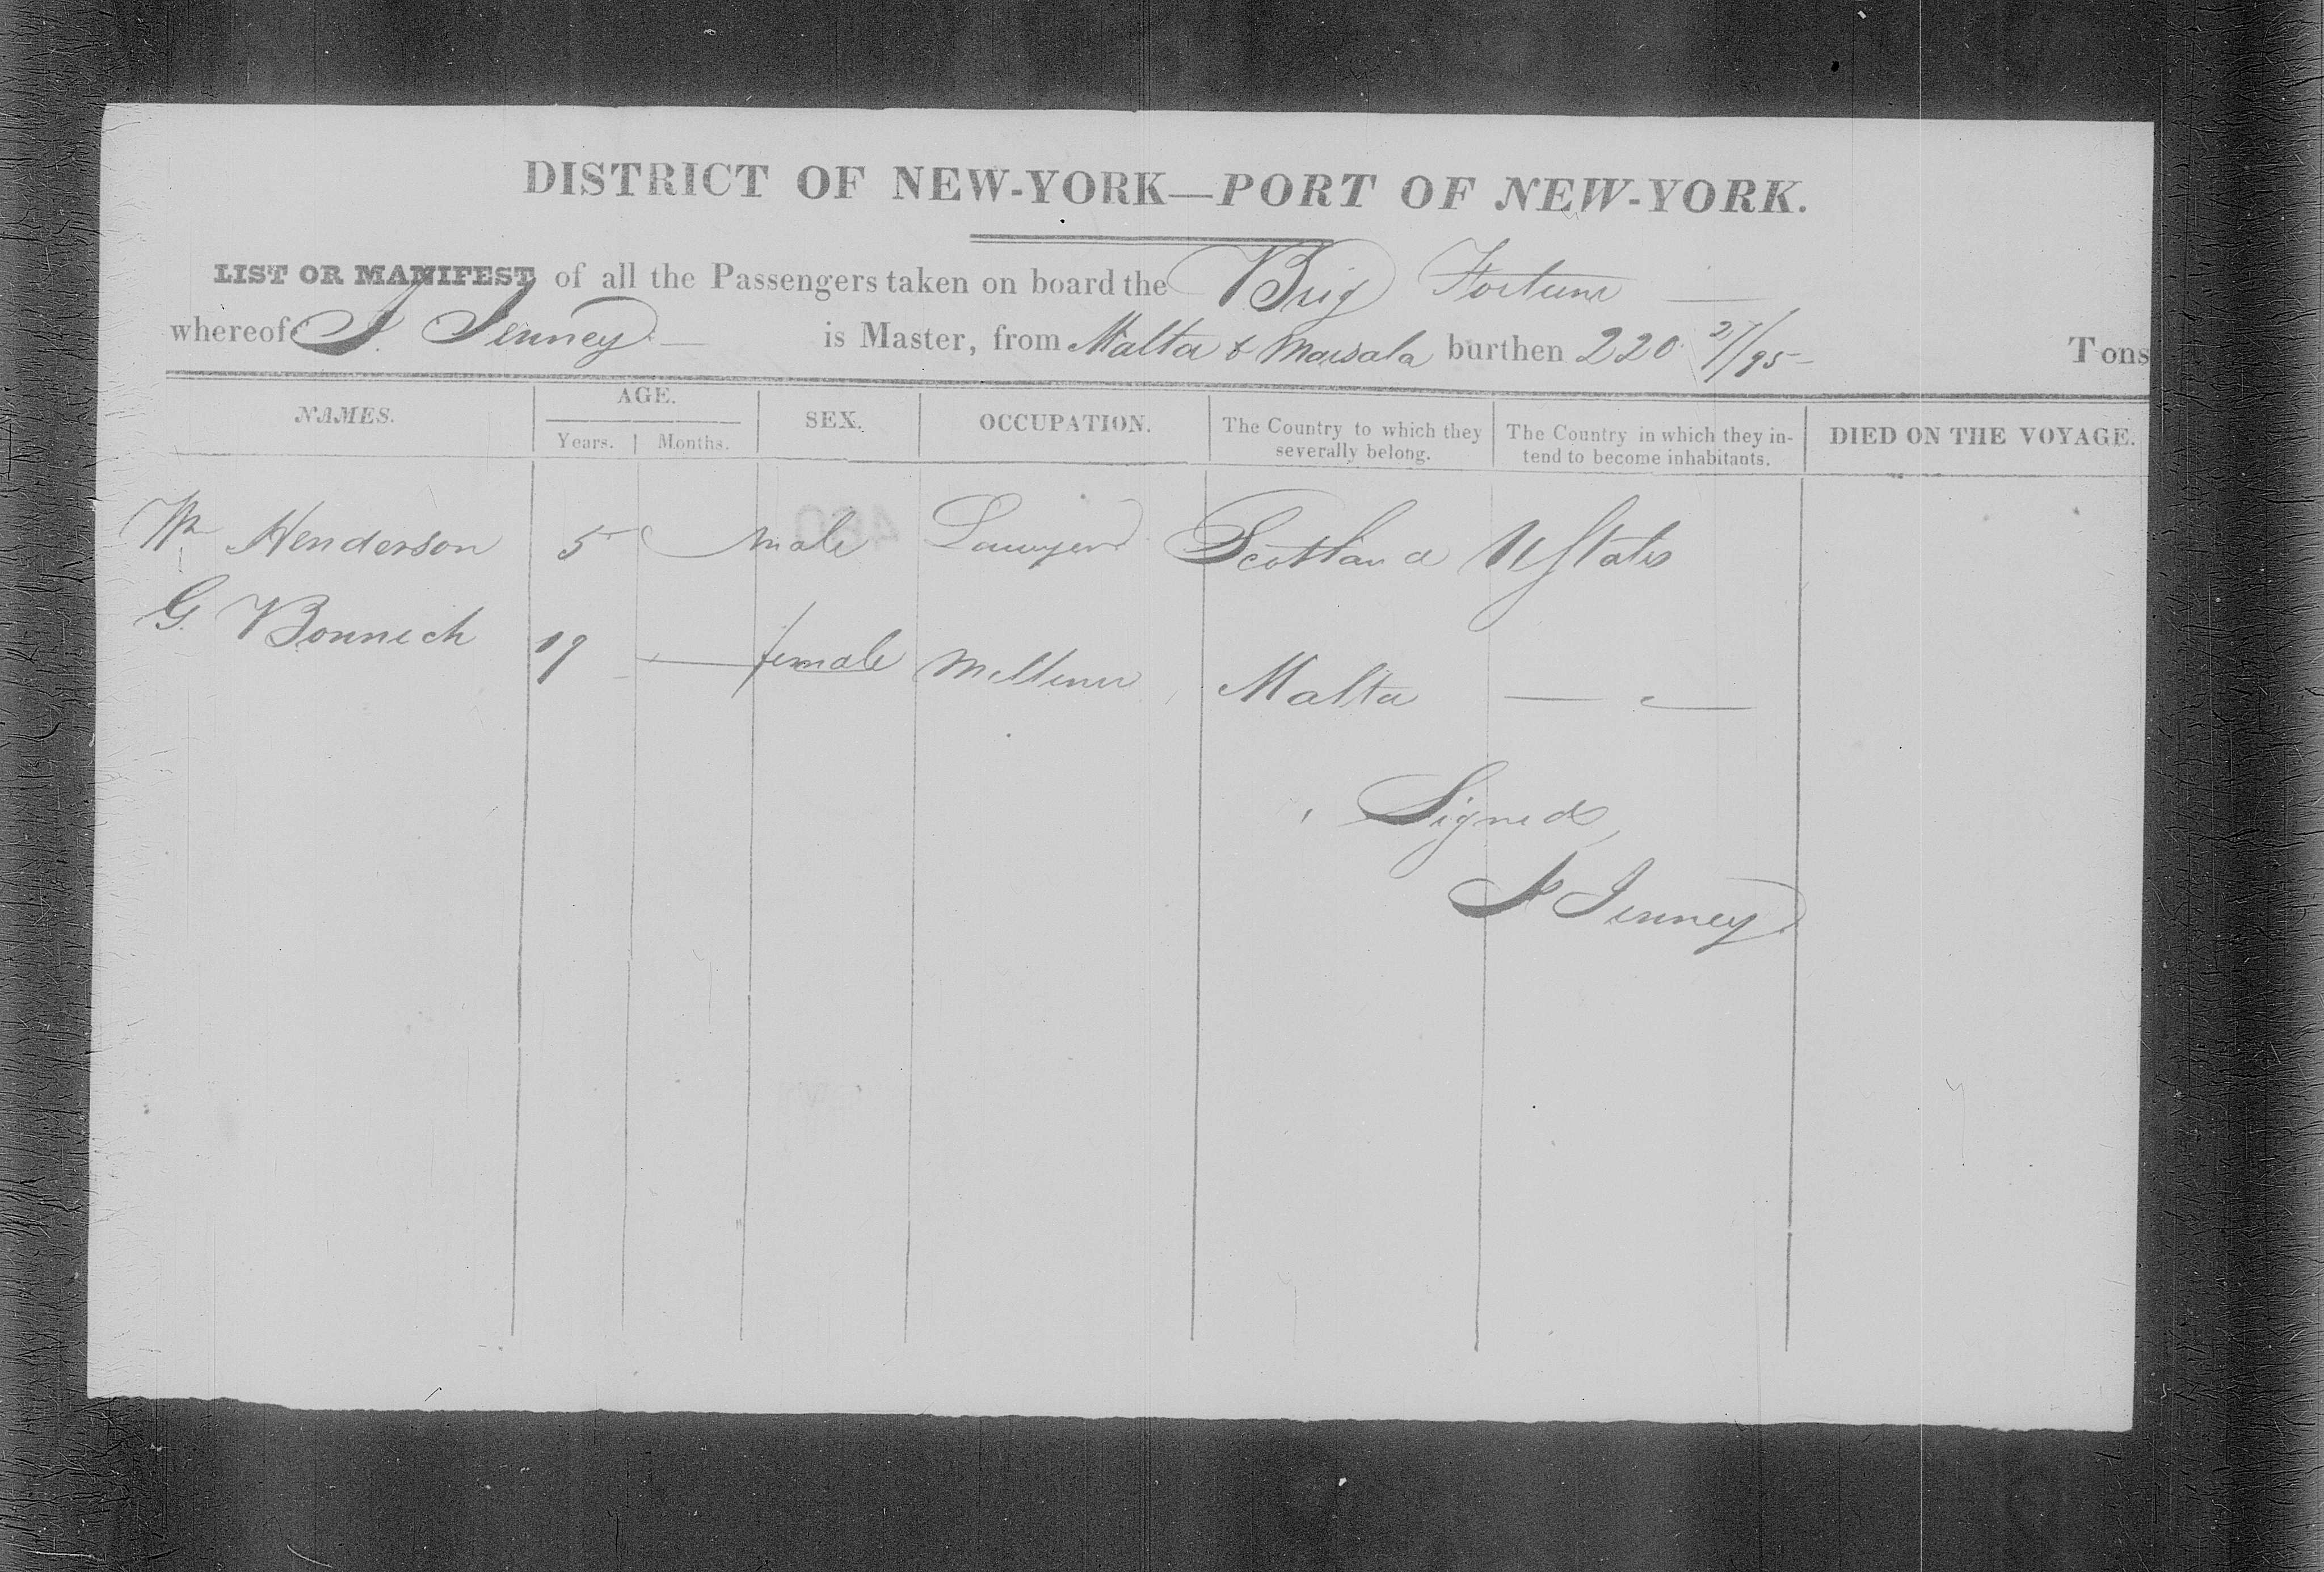 DISTRICT OF NEW-YORK—PORT OF NEW-YORK.
LIST OR MANIFEST of all the Passengers taken on board the Brig Fortune
whereof J. Jenney is Master, from Malta & Marsala burthen 220 27/95 Tons
NAMES. AGE. Years. Months. SEX. OCCUPATION. The Country to which they severally belong. The Country in which they in-tend to become inhabitants. DIED ON THE VOYAGE.
Wm Henderson 5 — male Lawyer Scotland U States
G. Bonnech 19 — female Milliner Malta — —
Signed,
J Jenney